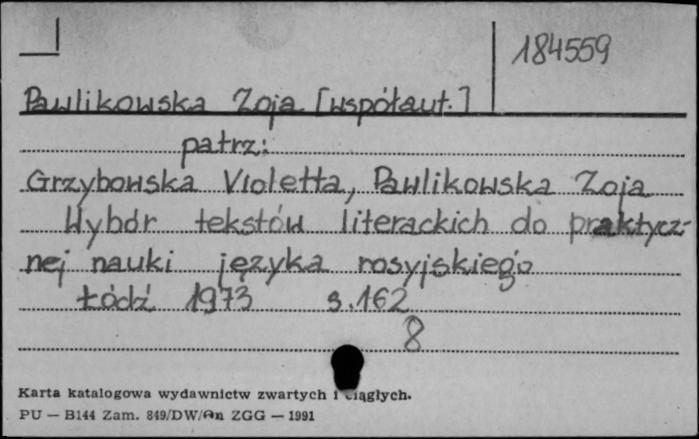 184559
Pawlikowska Zoja [współaut.]
patrz:
Grzybowska Violetta, Pawlikowska Zoja
Wybór tekstów literackich do praktycz-
nej nauki języka rosyjskiego
Łódź 1973 s. 162
8
Karta katalogowa wydawnictw zwartych i ciągłych.
PU — B144 Zam. 849/DW/An ZGG — 1991